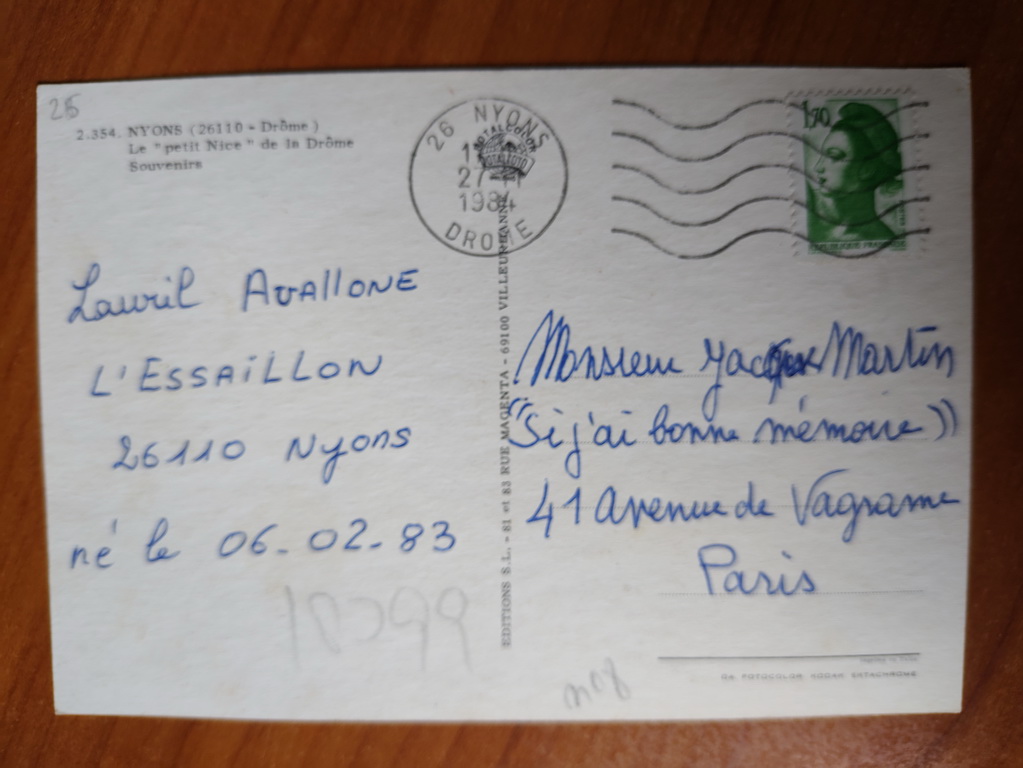 25
2.354. NYONS (26110 - Drôme)
Le "petit Nice" de la Drôme
Souvenirs
26 NYONS
27
1984
DROME
1,70
REPUBLIQUE FRANÇAISE
Lauril AvALLONE
L'ESSAiLLON
26110 Nyons
né le 06-02-83
EDITIONS S.L. - 81 et 83 RUE MAGENTA - 69100 VILLEURBANNE
Monsieur Jacques Martin
"Si j'ai bonne mémoire"
41 Avenue de Vagrame
Paris
DA FOTOCOLOR KODAK EKTACHROME